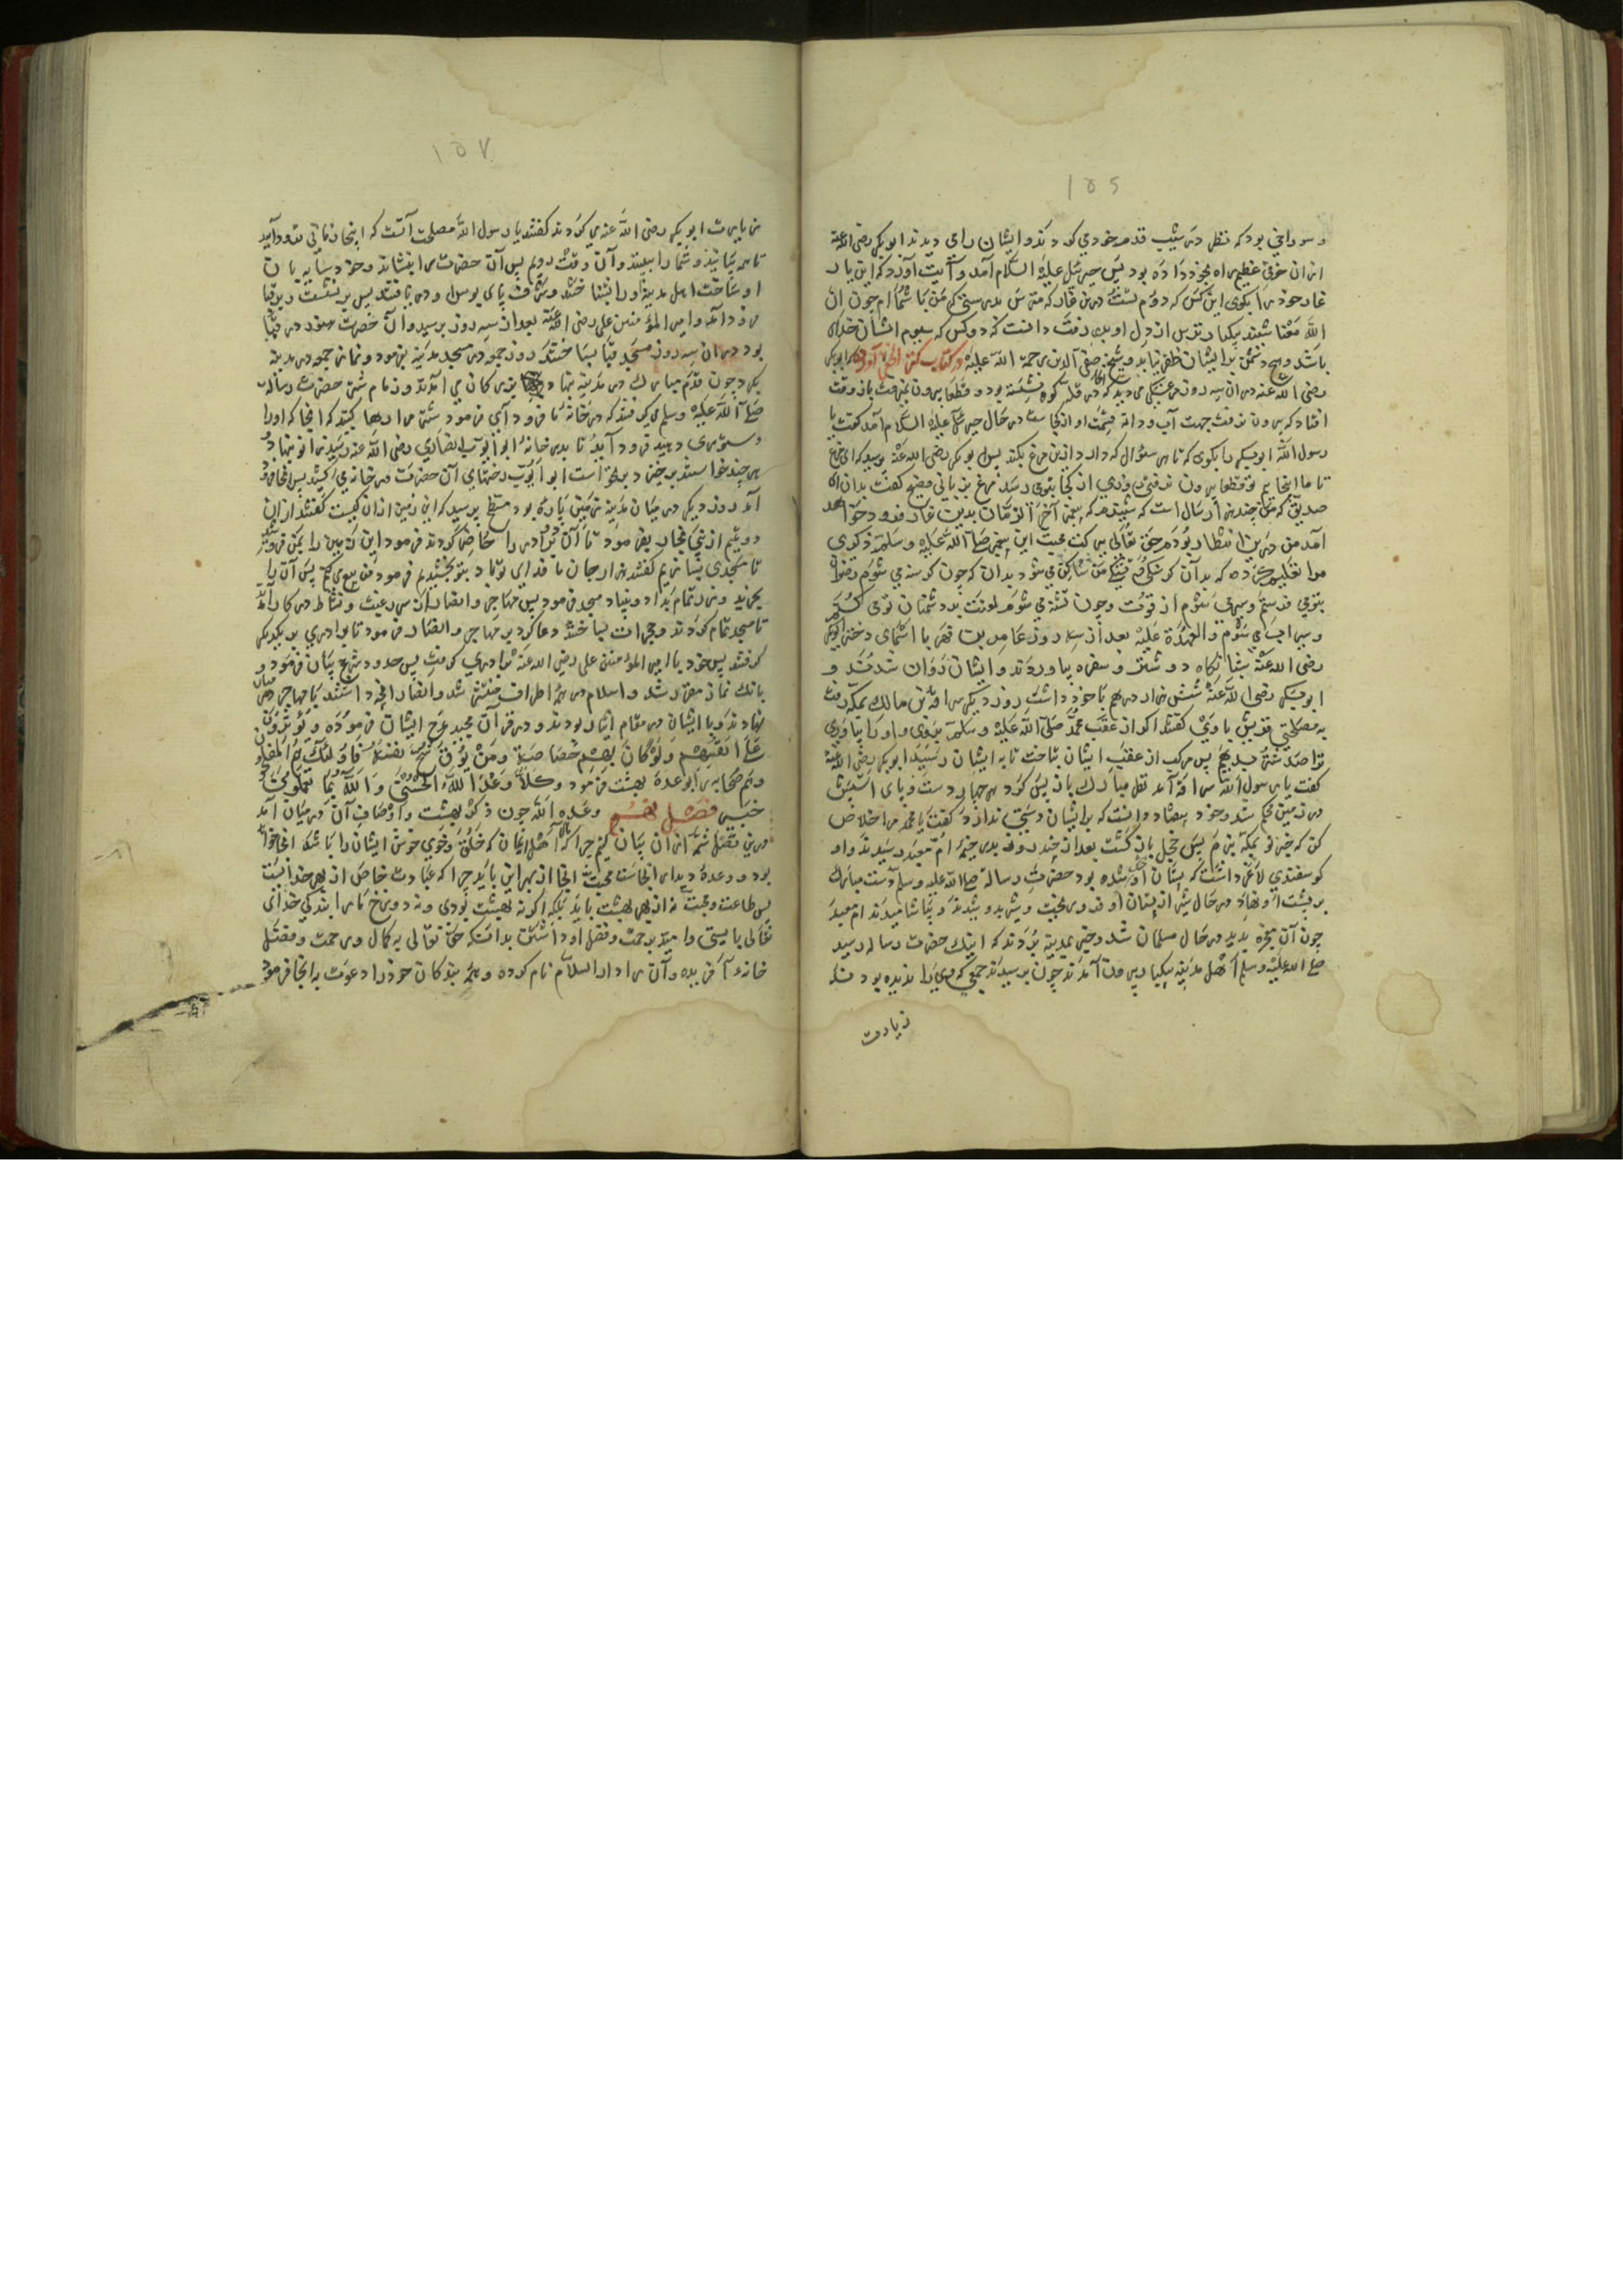 ١٥٦
و سوراخی بود که نظر در شیب قدم خود می کردند و ایشان را می دیدند ابوبکر رضی الله عنه
از ان خوفی عظیم راه بخود داده بود پس جبرئیل علیه السلام آمد و آیت آورد که این یار
غار خود را بکوی این کس که دوم تست درین غار که مترس بدرستی که من با شما ام چون ان
الله معنا شنید یکبار ترس از دل او بدر رفت دانست که دو کس که سیوم ایشان خدای
باشد هیچ دشمن برایشان ظفر نیابد و شیخ صفی الدین رحمة الله علیه در کتاب آورده که ابوبکر
رضی الله عنه در ان سه روز مرغکی می دید که در قله کوه نشسته بود و قطعا بیرون نمی رفت باز وقت
افتاد که بیرون نرفت جهت آب و دانه در حال جبرئیل علیه السلام آمد کفت یا
رسول الله ابوبکر را بکوی که تا هر سئوال که دارد ازین مرغ بکند پس ابوبکر رضی الله عنه پرسید که ای مرغ
تا ما اینجاییم تو قطعا بیرون نرفتی روزی از کجا بتو می رسد مرغ بزبانی فصیح کفت بدان ای
صدیق که من چندین سال است که شنیدم که پیغمبر آخر الزمان بدین غار فرود خواهد
آمد من درین انتظار بودم حق تعالی ببرکت محبت این پیغمبر صلی الله علیه وسلم ذکری
مرا تعلیم کرده که بدان که چون کرسنه می شوم
و سیراب می شوم و العهدة علیه بعد از سه روز عامر بن فهیره با اسمای دختر ابوبکر
رضی الله عنه شبانکاه دو شتر و سفره بیاوردند و ایشان روان شدند و
ابوبکر رضی الله عنه شش هزار درهم با خود داشت روز دیکر سراقة بن مالک بمکه رفت
قریش با وی کفتند اکر از عقب محمد صلی الله علیه وسلم بروی و او را بیاوری
ترا صد شتر بدهیم پس مرکب از عقب ایشان بتاخت تا به ایشان رسید ابوبکر رضی الله عنه
کفت یا رسول الله سراقه آمد نظر مبارک باز پس کرد هر چهار دست و پای اسبش
در زمین محکم شد و خود بیفتاد دانست که برایشان دستی ندارد کفت یا محمد مرا خلاص
کن که خیر تو بمکه برم پس خجل باز کشت بعد از چند روز بدر خیمه ام معبد رسیدند و او
کوسفندی لاغر داشت که پستان او خشک شده بود حضرت رسالة صلی الله علیه وسلم دست مبارک
بر پشت او نهاد در حال شیر از پستان او فرو ریخت و شیر بدوشیدند و بیاشامیدند ام معبد
چون آن معجزه بدید در حال مسلمان شد و خبر بمدینه بردند که اینک حضرت رساله رسید
صلی الله علیه وسلم اهل مدینه بیکبار بیرون آمدند چون برسیدند جمعی که وی را ندیده بودند
زیارت
١٥٧
زیارت ابوبکر رضی الله عنه می کردند کفتند یا رسول الله مصلحت آنست که اینجا زمانی فرود آیید
تا همه بیایند و شما را ببینند و آن وقت رویم پس آن حضرت را بنشاند و خود
او ساخت اهل مدینه او را بشناختند و شرف پای بوس او دریافتند پس بر نشست و بقبا
فرود آمد و امیر المؤمنین علی رضی الله عنه بعد از سه روز برسید و آن حضرت سه روز در قبا
بود در ان سه روز مسجد قبا بساختند روز جمعه در مسجد مدینه بفرمود و نماز جمعه در مدینه
بکرد چون قدم مبارک در مدینه نهاد بزرکان می آمدند و زمام شتر حضرت رساله
صلی الله علیه وسلم می کرفتند که در خانه ما فرود آی فرمود شتر را رها کنید که انجا که او را
دستوری دهند فرود آید تا بدر خانه ابو ایوب انصاری رضی الله عنه رسید زانو نهاد و
هر چند خواستند برخیزد بر نخواست ابو ایوب رختهای آن حضرت در خانه کشید پس انجا فرود
آمد روز دیکر در میان مدینه زمین پاره بود مسطح پرسید که این زمین از ان کیست کفتند از ان
دو یتیم از بنی نجار بفرمود تا آن دو برادر را حاضر کردند فرمود این زمین را بمن فروشید
تا مسجدی بسازیم کفتند هزار جان ما فدای تو باد بتو بخشیدیم فرمود من بیع می کنم پس آن را
بخرید و زر تمام بداد و بنیاد مسجد فرمود پس مهاجر و انصار از سر رغبت و نشاط در کار آمدند
تا مسجد تمام کردند و حجرات بساختند دعا کرد بر مهاجر و انصار فرمود تا برادری با یکدیکر
کرفتند پس خود با امیر المؤمنین علی رضی الله عنه برادری کرفت پس حدود شرع بیان فرمود و
بانک نماز مقرر شد و اسلام در همه اطراف منتشر شد و انصار انچه داشتند با مهاجر در میان
نهادند و با ایشان در مقام ایثار بودند و در قرآن مجید مدح ایشان فرموده و یؤثرون
علی انفسهم ولو کان بهم خصاصة ومن یوق شح نفسه فاولئک هم المفلحون
و هم صحابه را بوعده بهشت فرمود وکلا وعد الله الحسنی والله بما تعملون
خبیر فصل نهم وعده الله چون ذکر بهشت و اوصاف آن در میان آمد
درین فصل شمه از ان بیان کنیم چرا که اهل ایمان که خلق و خوی خوش ایشان را باشد انجا خواهند
بود و وعده دیدار انجاست محبت انجا از بهر این باید چرا که عبادت خاص از بهر خداست
پس طاعت و محبت نه از بهر بهشت باید بلکه اکر نه بهشت بودی و نه دوزخ مارا بندکی خدای
تعالی بایستی و امید برحمت و فضل او داشتن بدانکه حق تعالی به کمال رحمت و فضل
خانه آفریده و آن را دار السلام نام کرده و همه بندکان خود را دعوت به انجا فرمود